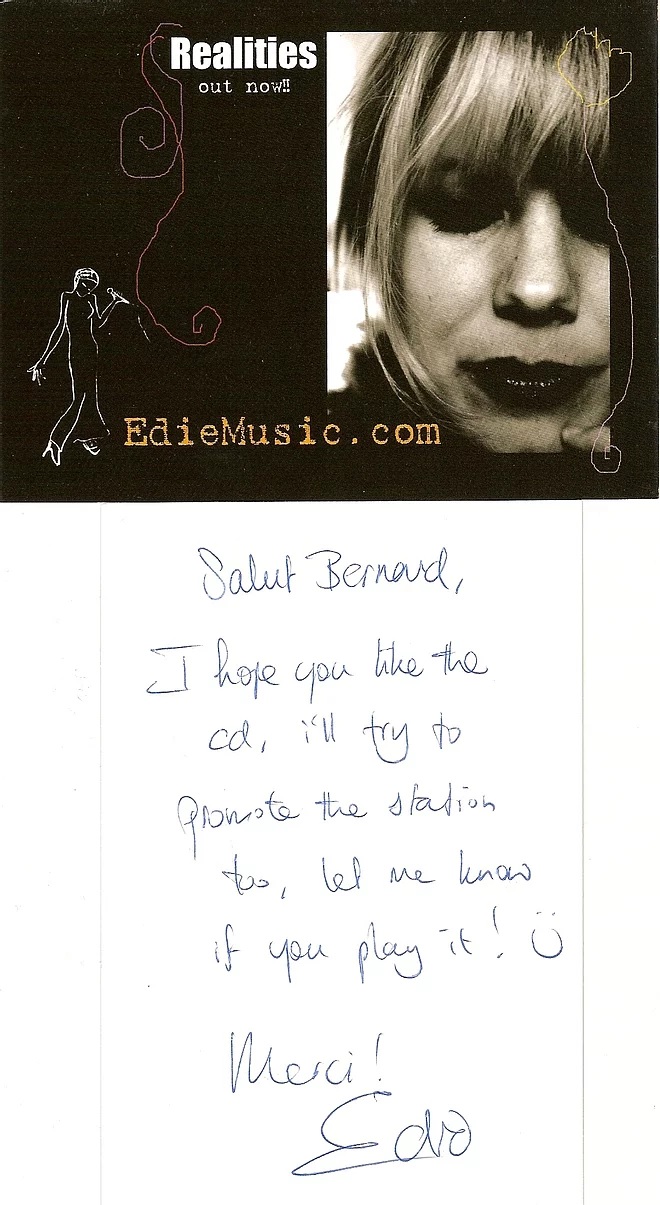 Realities
out now!!
EdieMusic.com
Salut Bernard,
I hope you like the
cd, i'll try to
promote the station
too, let me know
if you play it! Ü
Merci!
Edie